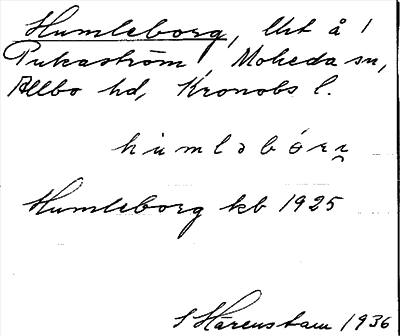 Humleborg, lht å 1
Pukaström, Moheda sn,
Allbo hd, Kronobs l.
Humleborg kb 1925
S Härenstam 1936